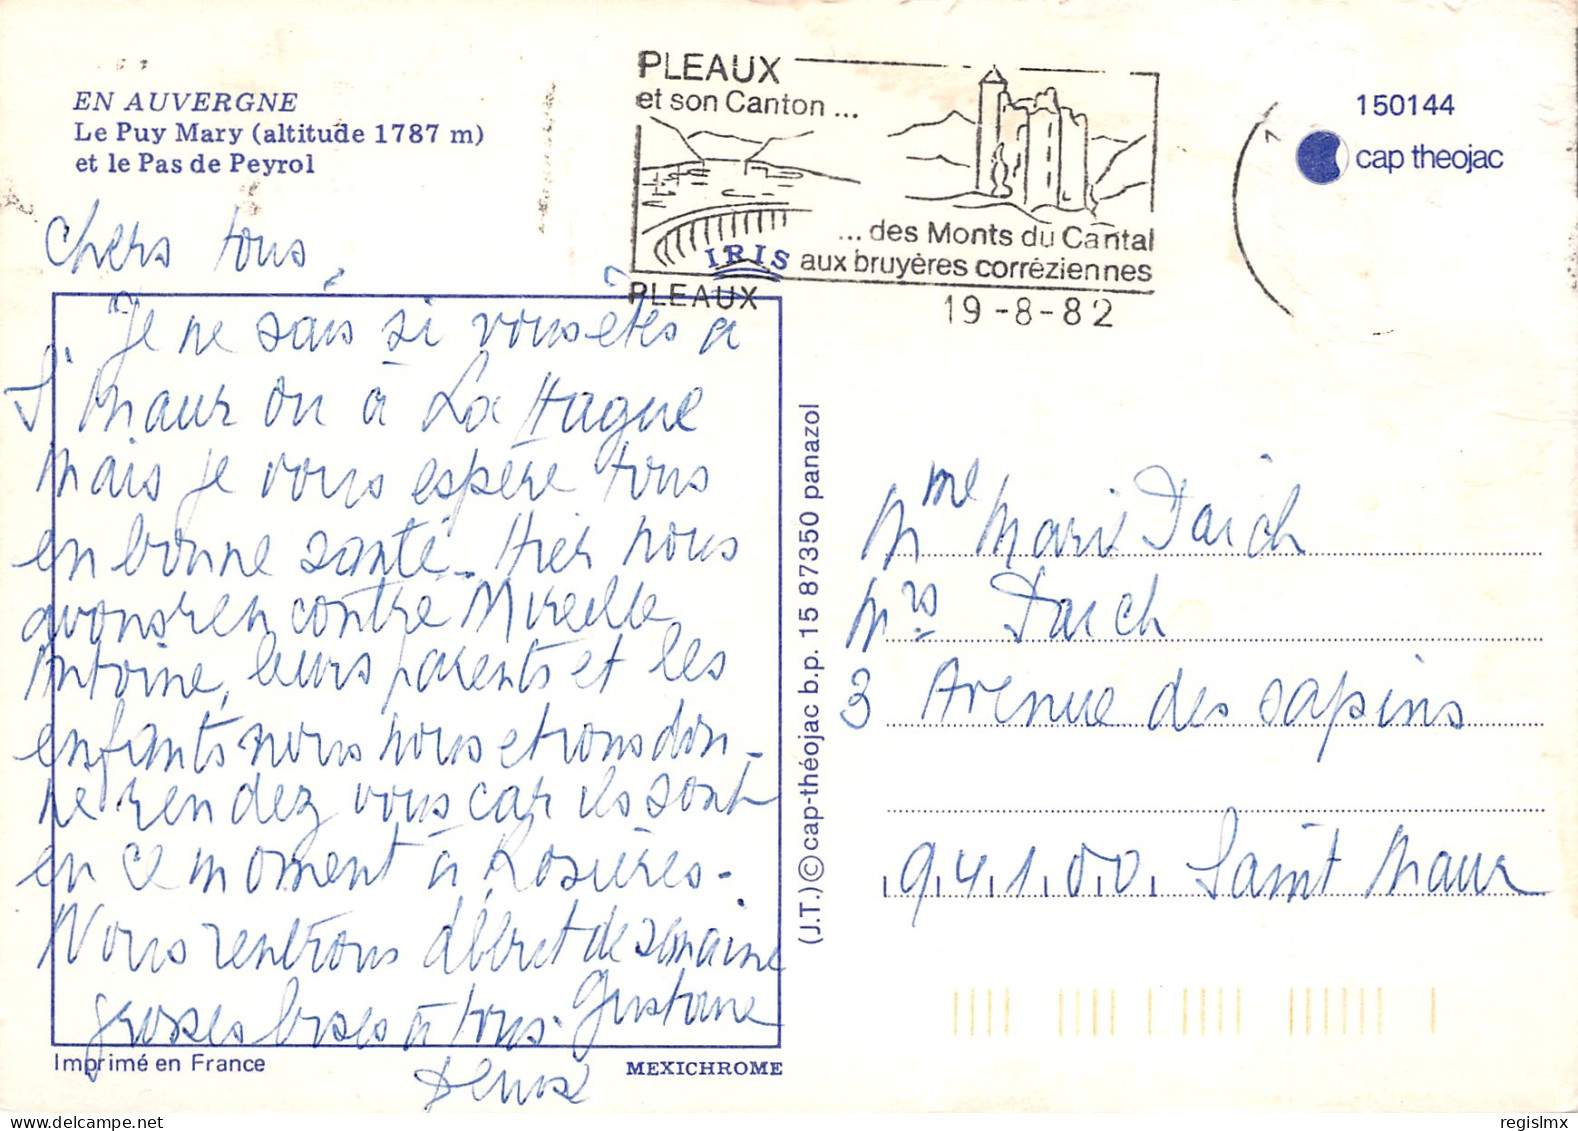 EN AUVERGNE
Le Puy Mary (altitude 1787 m)
et le Pas de Peyrol
PLEAUX
et son Canton ...
... des Monts du Cantal
aux bruyères corréziennes
IRIS
PLEAUX
19 -8- 82
150144
cap theojac
Chers tous,
Je ne sais si vous êtes à
St Maur ou à La Hague
Mais je vous espère tous
en bonne santé. Hier nous
avons rencontré Mireille
Antoine, leurs parents et les
enfants nous nous etions don-
né rendez vous car ils sont
en ce moment à Rosières.
Nous rentrons début de semaine
grosses bises à tous. Gustave
Denise
Mme Marie Darch
Mrs Darch
3 Avenue des sapins
94100 Saint Maur
(J.T.) © cap-théojac b.p. 15 87350 panazol
Imprimé en France
MEXICHROME
regislmx